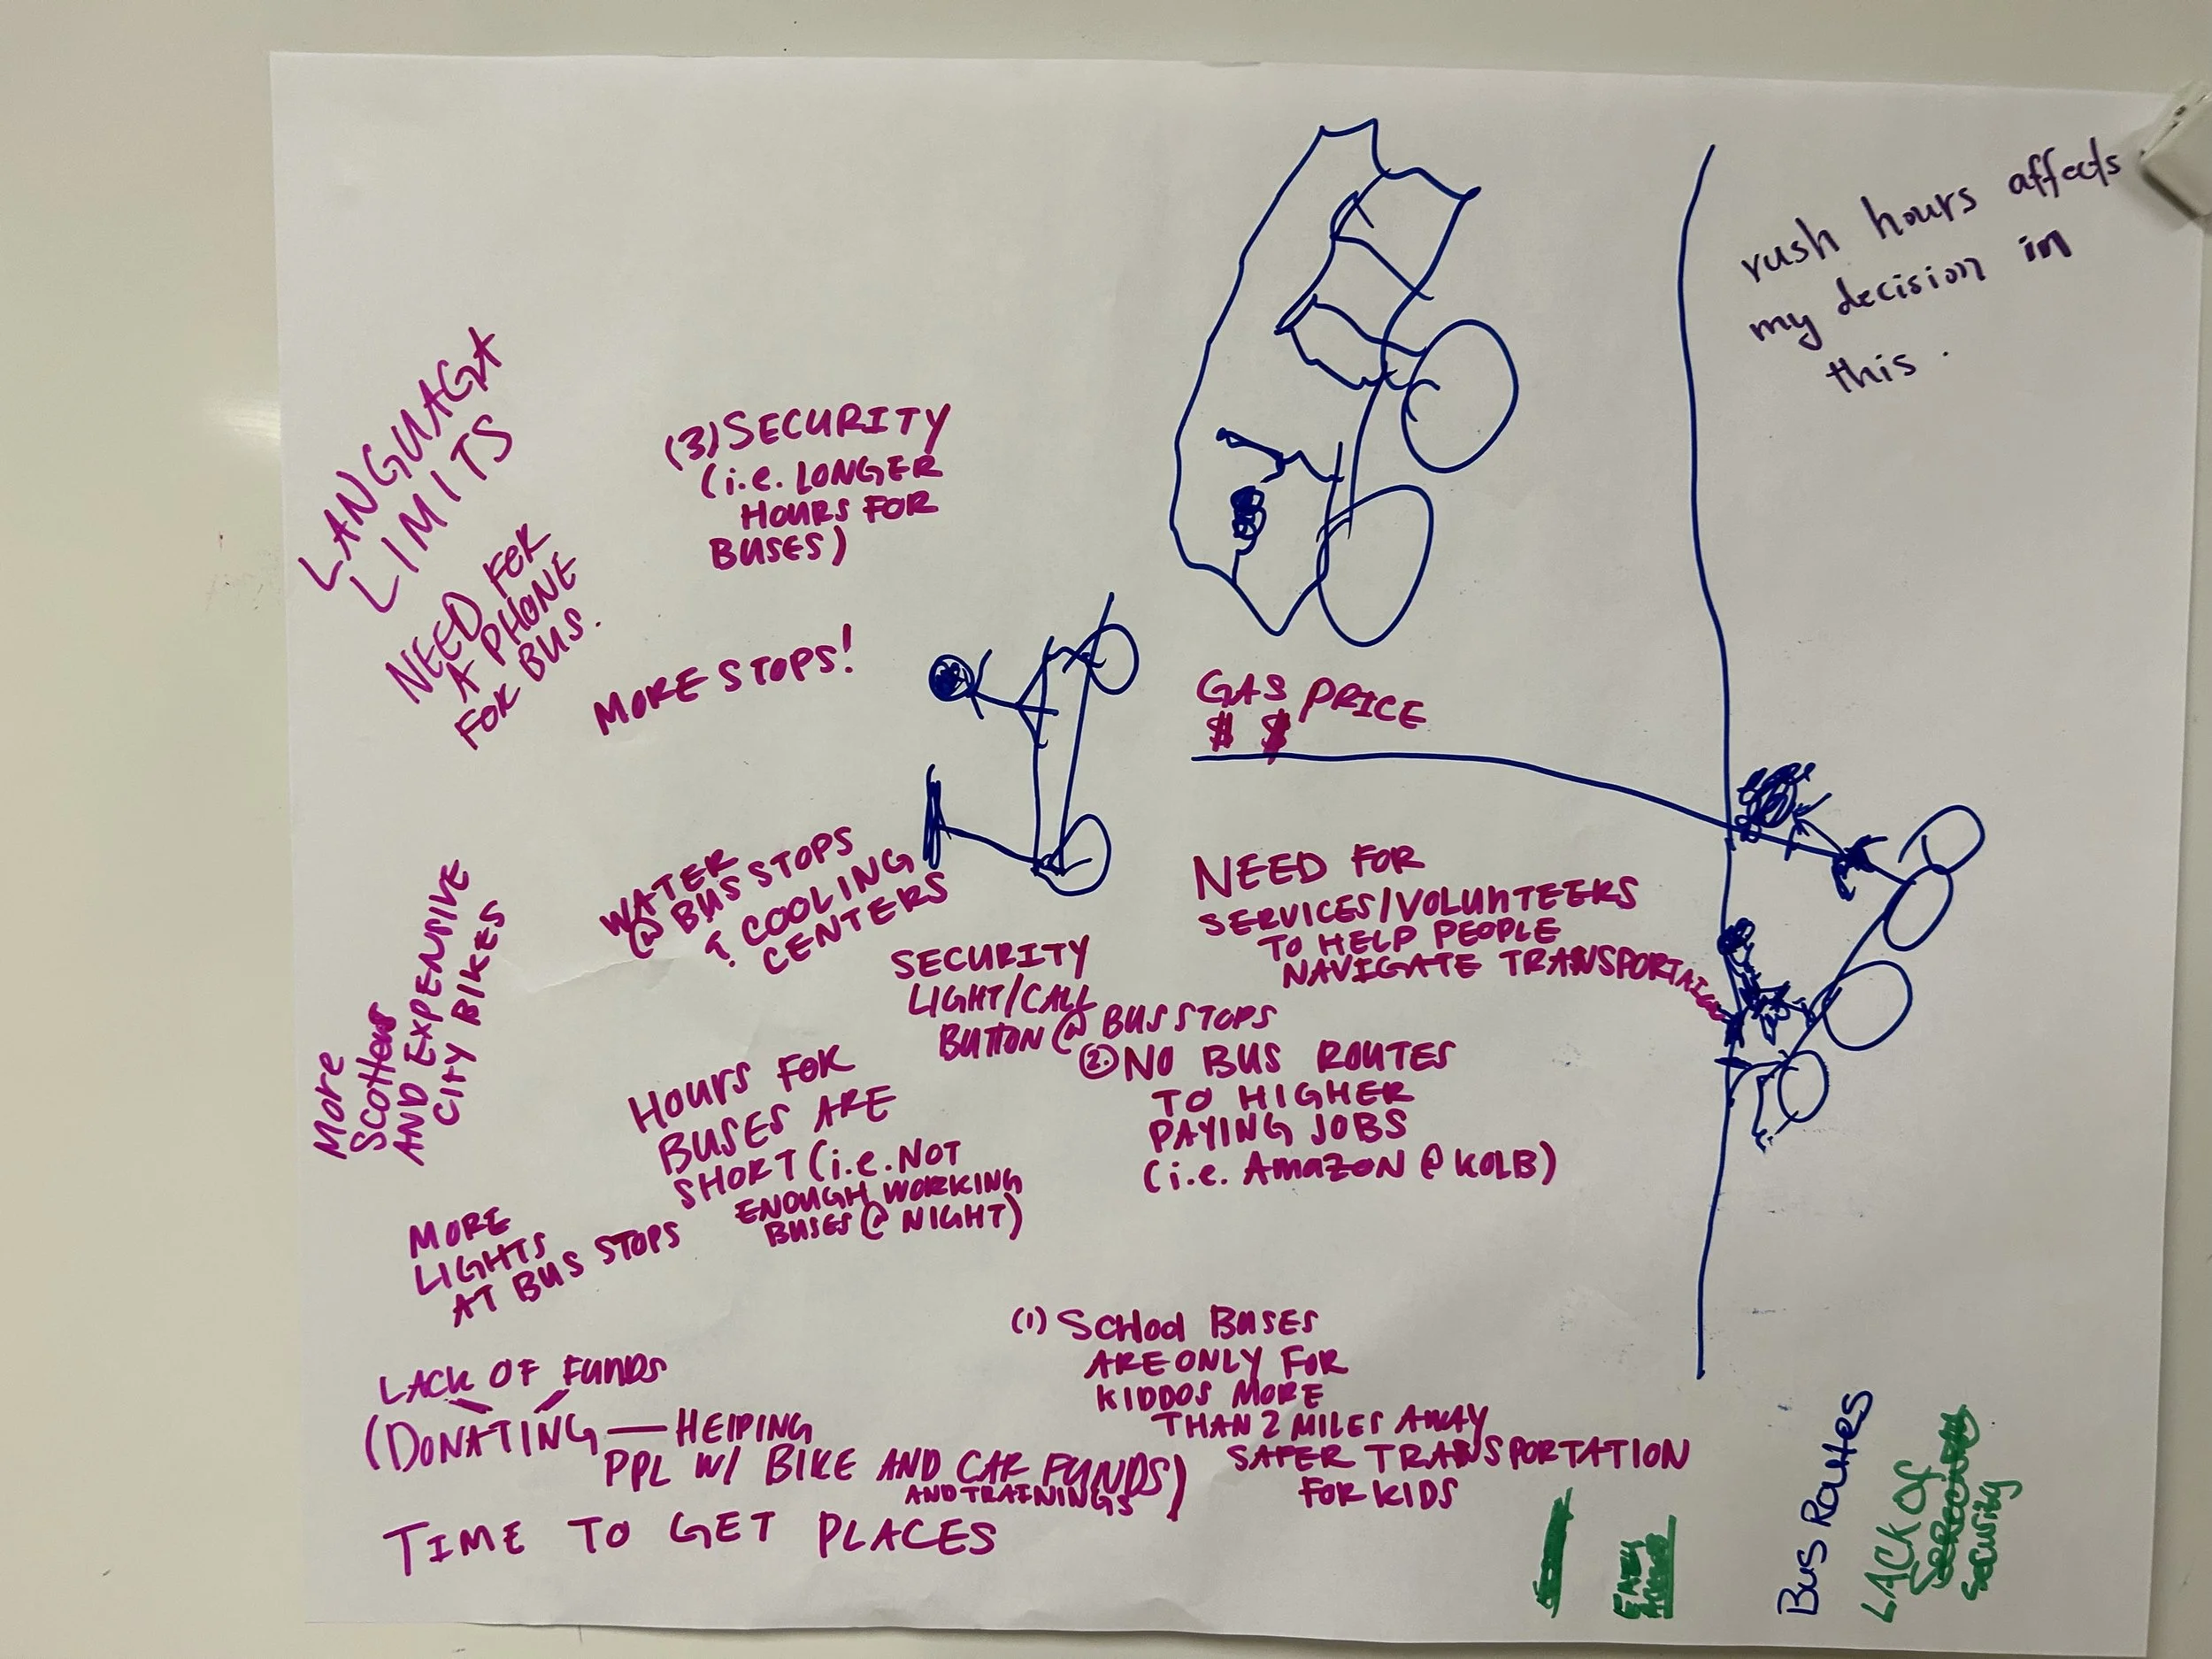 rush hours affects
my decision in
this.
LANGUAGA
LIMITS
NEED FOR
A PHONE
FOR BUS.
(3) SECURITY
(i.e. LONGER
HOURS FOR
BUSES)
MORE STOPS!
GAS PRICE
$ $
WATER
@ BUS STOPS
& COOLING
CENTERS
NEED FOR
SERVICES/VOLUNTEERS
TO HELP PEOPLE
NAVIGATE
SECURITY
LIGHT/CALL
BUTTON @ BUS STOPS
More
Scotters
AND EXPENSIVE
CITY BIKES
HOURS FOR
BUSES ARE
SHORT (i.e. NOT
ENOUGH WORKING
BUSES @ NIGHT)
2. NO BUS ROUTES
TO HIGHER
PAYING JOBS
(i.e. AmaZON @ KOLB)
MORE
LIGHTS
AT BUS STOPS
(1) SCHool BUSES
ARE ONLY FOR
KIDDOS MORE
THAN 2 MILES AWAY
SAFER TRANSPORTATION
FOR KIDS
LACK OF FUNDS
(DONATING — HElPING
PPL W/ BIKE AND CAR FUNDS)
AND TRAININGS
TIME TO GET PLACES
Bus Routes
LACK OF
Security